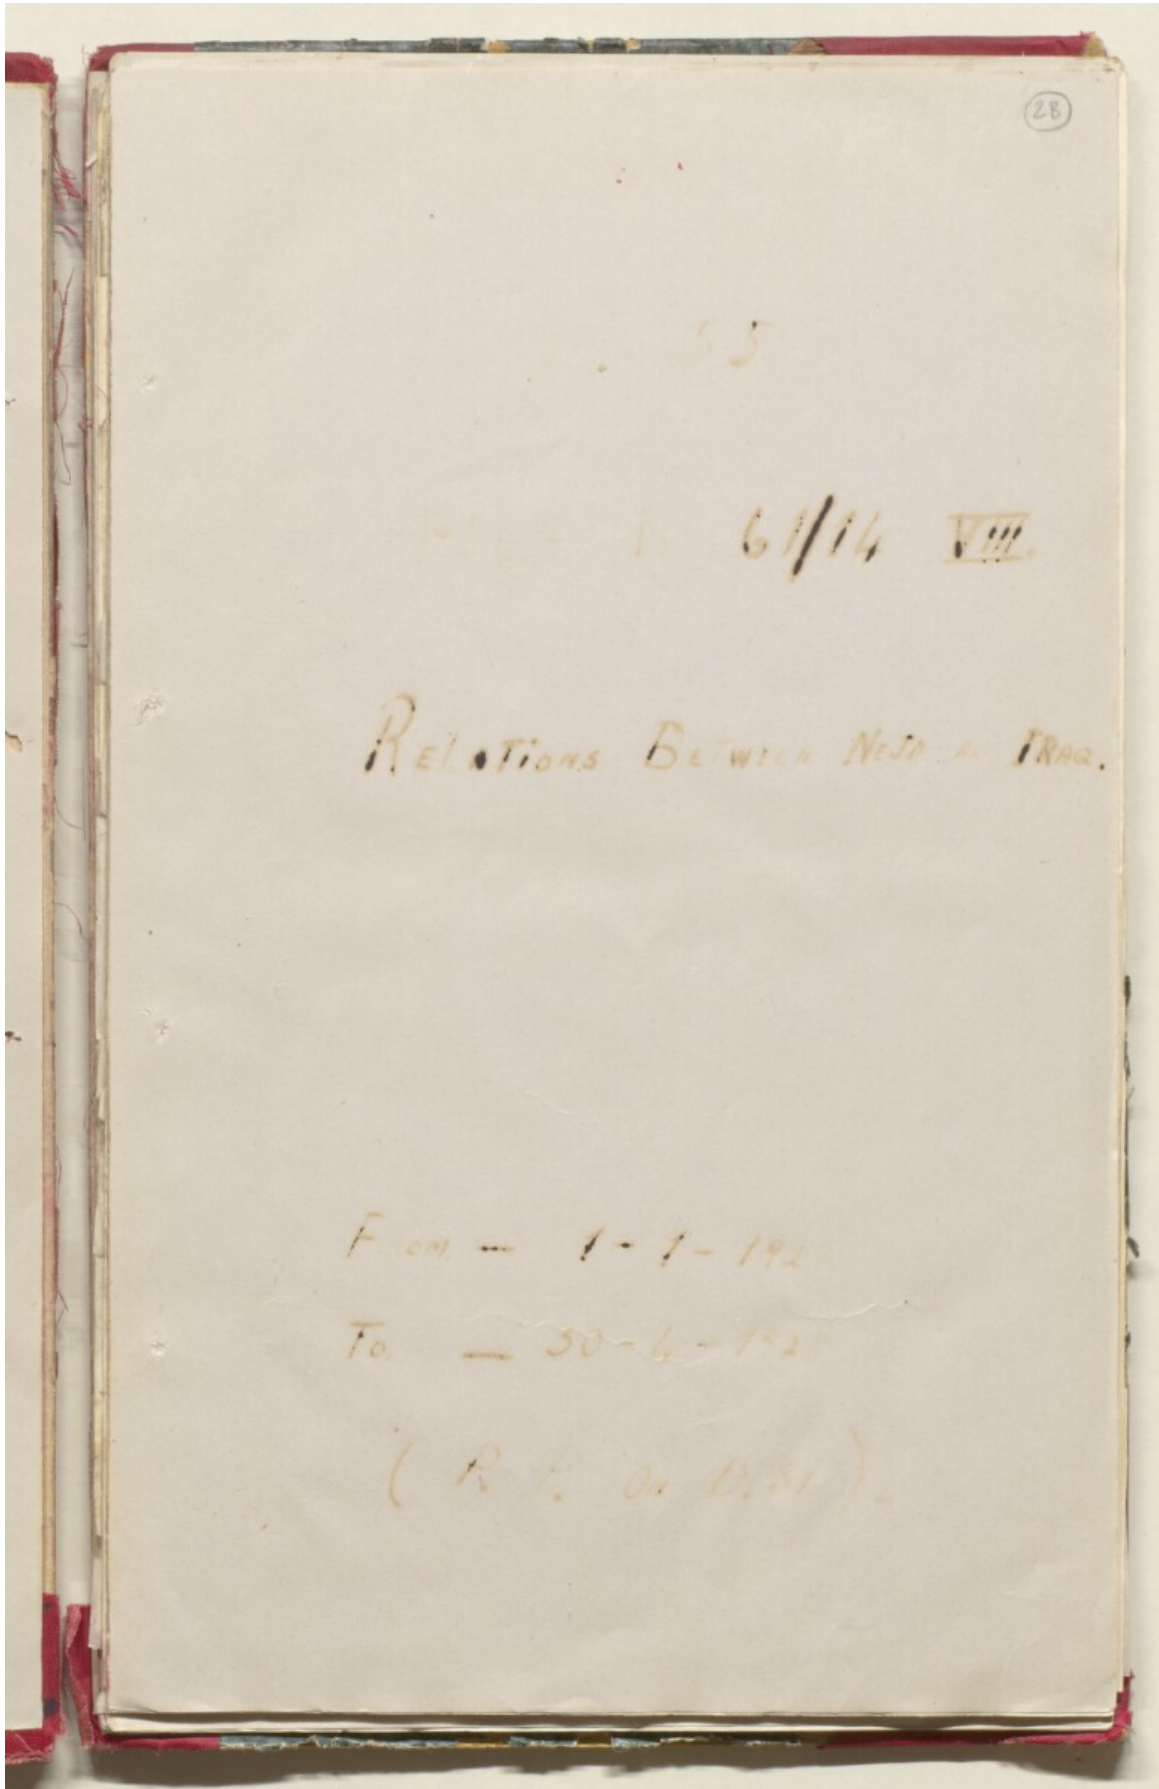 2B
55
61/14 VIII.
RELATIONS BETWEEN NEJD IRAQ.
FROM — 1-1-192
TO — 30-4-192
(R.P. On